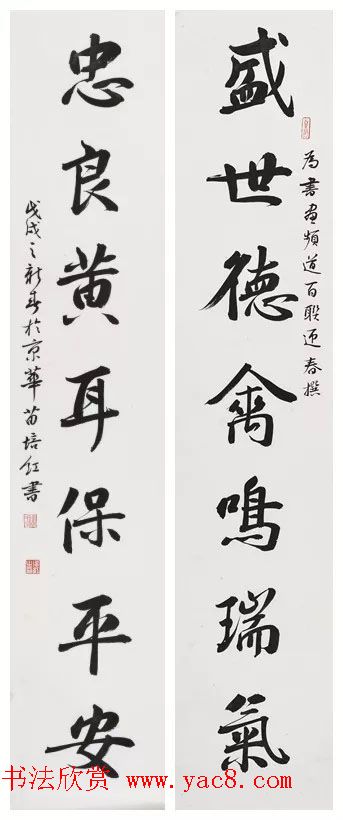 盛世德禽鳴瑞氣
為書畫頻道百联迎春撰
忠良黄耳保平安
戊戌之新春於京華苗培红書
书法欣赏www.yac8.com